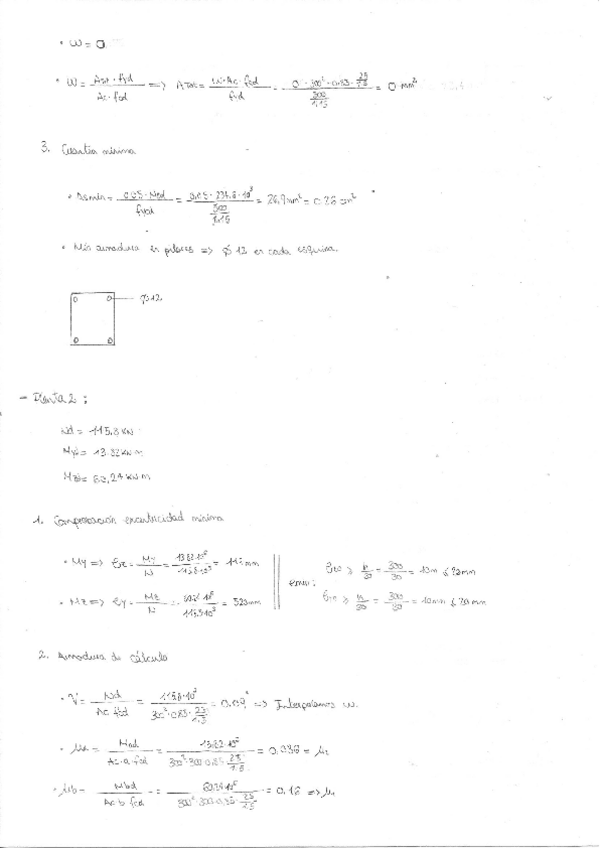 • W = 0.
• W = Atot · fyd / Ac · fcd => Atot = W · Ac · fcd / fyd = 0 · 300² · 0.85 · 25/1.5 / 500/1.15 = 0 mm²
3. Cuantía mínima
• Asmin = 0.05 · Nd / fyd = 0.05 · · 10³ / 500/1.15 = 26.9 mm² = 0.26 cm²
• Mín armadura en pilares => ϕ 12 en cada esquina.
ϕ12
- Planta 2 :
Nd = 115.8 KN
My = 13.82 KN m
Mz = ,24 KN m
1. Comprobación excentricidad mínima
• My => ez = My / N = 13.82 · 10⁶ / 115.8 · 10³ = mm
• Mz => ey = Mz / N = · 10⁶ / 115.8 · 10³ = mm
emin:
≥ h/30 = 300/30 = 10 mm ≤ 20 mm
≥ h/30 = 300/30 = 10 mm ≤ 20 mm
2. Armadura de cálculo
• V = Nd / Ac fcd = 115.8 · 10³ / 300² · 0.85 · 25/1.5 = 0.09 => Interpolamos w.
• μa = Mad / Ac · a · fcd = 13.82 · 10⁶ / 300² · 300 · 0.85 · 25/1.5 = 0.036 =
• μb = Mbd / Ac · b · fcd = · 10⁶ / 300² · 300 · 0.85 · 25/1.5 = 0.16 =>